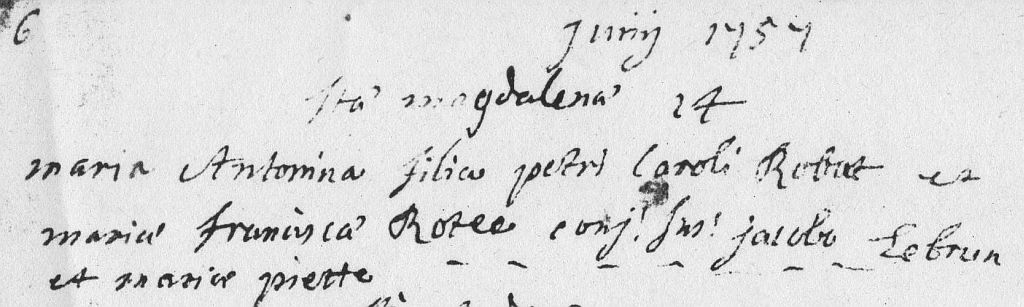 6
Junij 1757
Sta magdalena 14
maria Antonina filia petri Caroli Robut et
mariæ francisca Rotee conj: sus: jacobo Lebrun
et mariæ piette